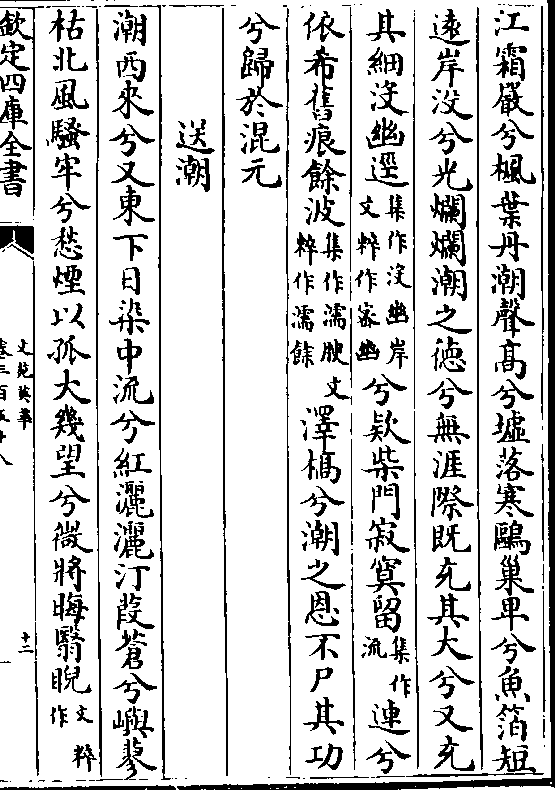 江霜嚴兮楓葉丹潮聲高兮墟落寒鷗巢卑兮魚箔短
遠岸没兮光爛爛潮之德兮無涯際既充其大兮又充
其細没幽逕集作没幽岸文粹作密幽兮欵柴門寂寞留集作流連兮
依希舊痕餘波集作濡腴文粹作濡餘澤槁兮潮之恩不尸其功
兮歸於混元
送潮
潮西來兮又東下日染中流兮紅灑灑汀葭蒼兮嶼蓼
枯北風騷牢兮愁煙以孤大幾望兮微將晦翳睨文粹作
欽定四庫全書
文苑英華
卷三百五十八
十二